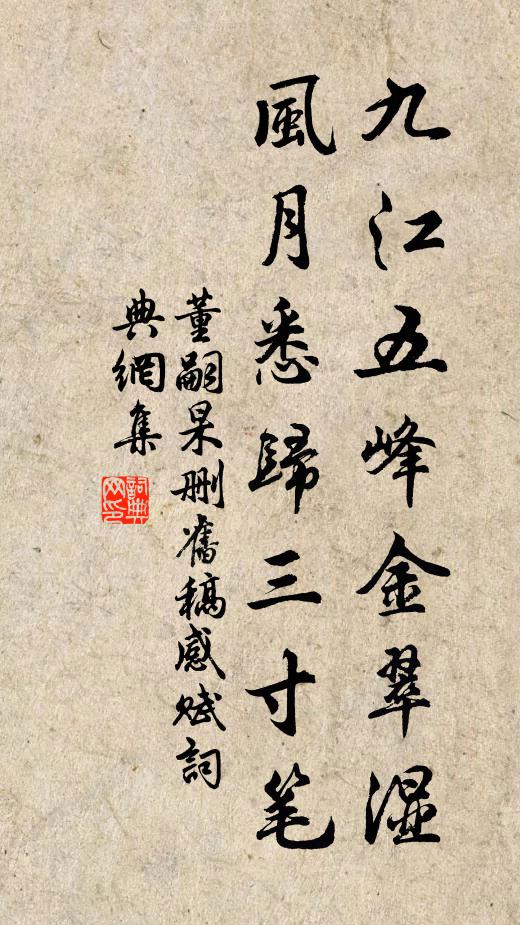 九江五峰金翠濕
風月悉歸三寸笔
董嗣杲删舊稿感賦詞
典網集
詞典网印